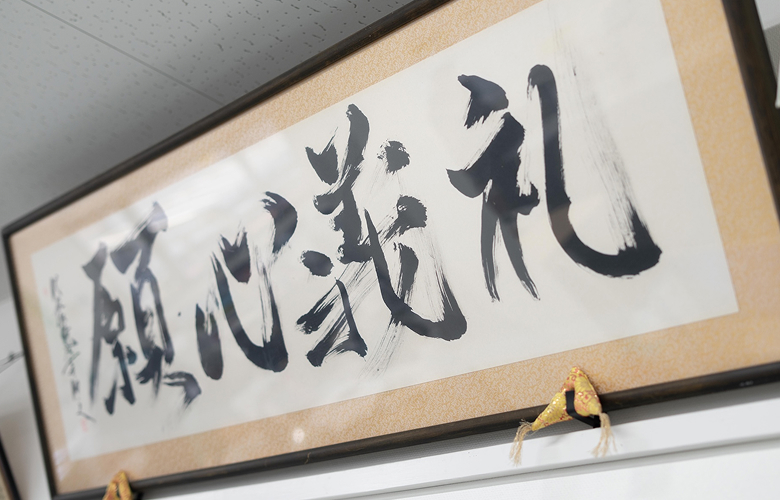 礼義心願